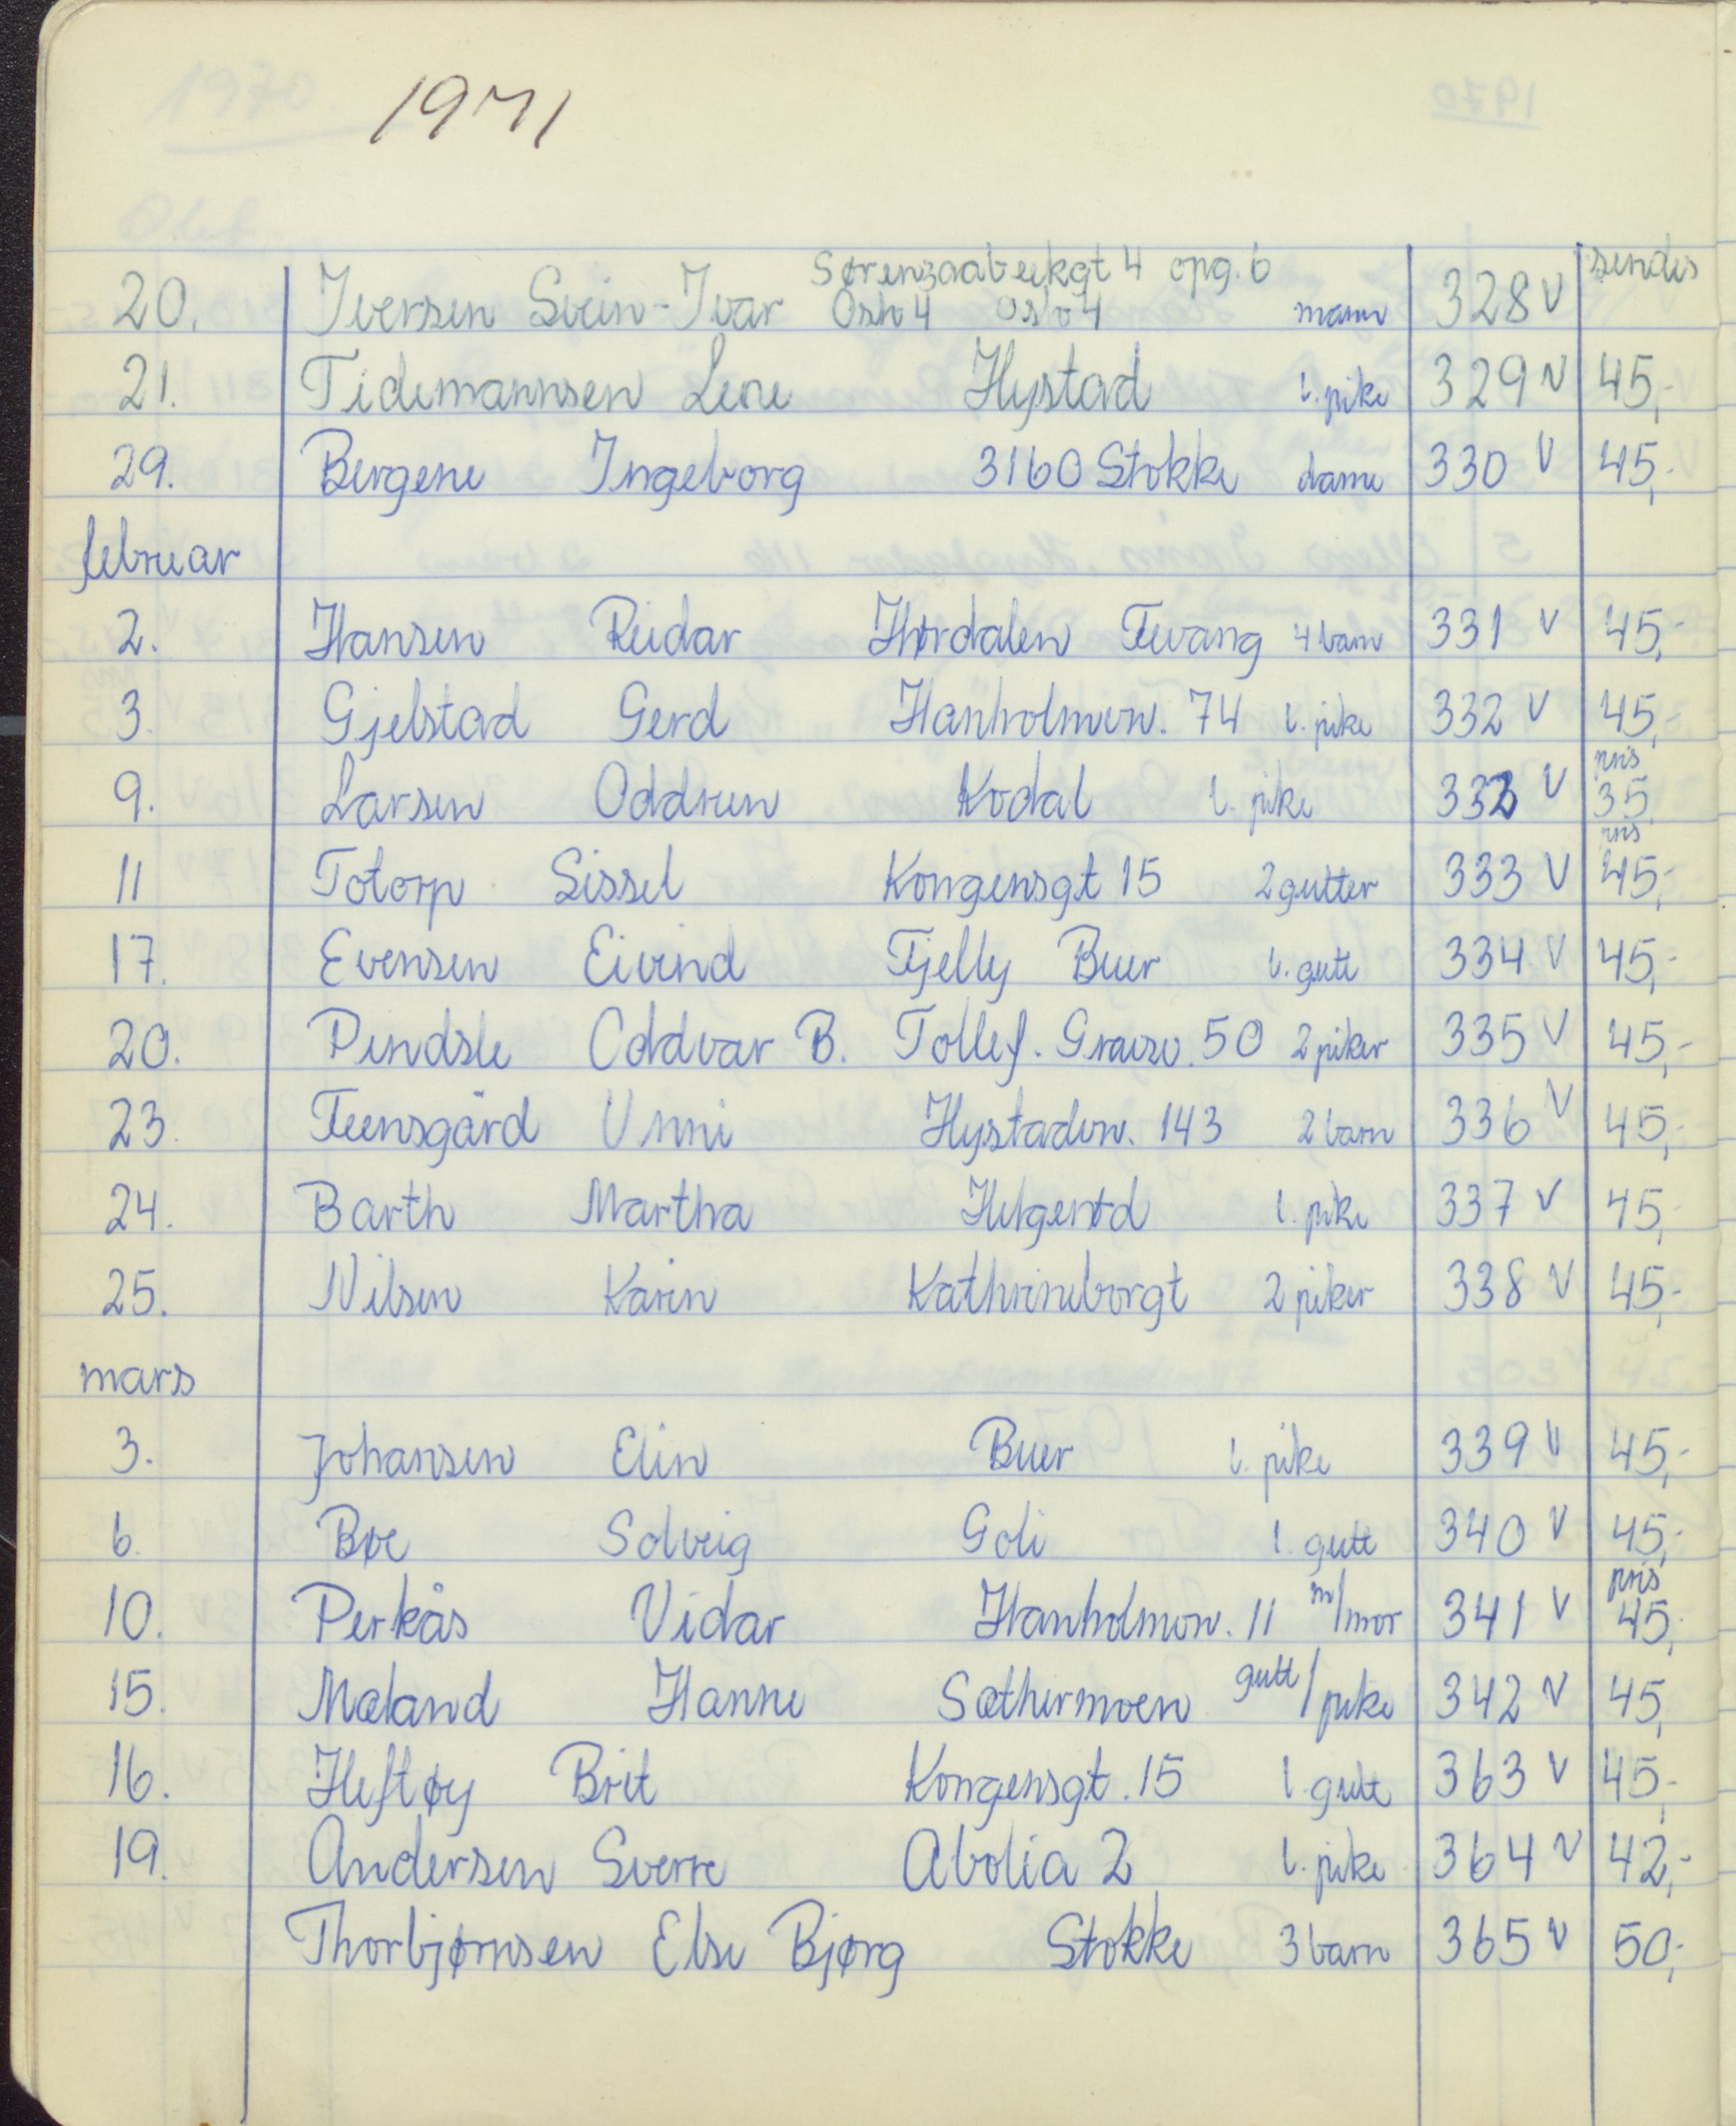 1971
Sørengaabekgt 4 opg. 6 sendes
20. Iversen Svein-Ivar Oslo 4 Oslo 4 mann 328 V
21. Tidemannsen Lene Hystad 1. pike 329 V 45,-
29. Bergene Ingeborg 3160 Stokke dame 330 V 45,-
februar
2. Hansen Reidar Hørdalen Fevang 4 barn 331 V 45,-
3. Gjelstad Gerd Hanholmvn. 74 1. pike 332 V 45,-
pris
9. Larsen Oddrun Kodal 1. pike 333 V 35,
pris
11 Totorp Sissel Kongensgt 15 2 gutter 333 V 45,-
17. Evensen Eivind Fjelly Buer 1. gutt 334 V 45,-
20. Pindsle Oddvar B. Tollef. Gravsv. 50 2 piker 335 V 45,-
23. Feensgård Unni Hystadvn. 143 2 barn 336 V 45,-
24. Barth Martha Helgerød 1. pike 337 V 45,-
25. Nilsen Karin Kathrineborgt 2 piker 338 V 45,-
mars
3. Johansen Elin Buer 1. pike 339 V 45,-
6. Bøe Solveig Goli 1. gutt 340 V 45,-
pris
10. Perkås Vidar Hanholmvn. 11 m/mor 341 V 45,-
15. Mæland Hanne Sæthermoen gutt/pike 342 V 45,
16. Heftøy Brit Kongensgt. 15 1. gutt 363 V 45,-
19. Andersen Sverre Abolia 2 1. pike 364 V 42,-
Thorbjørnsen Else Bjørg Stokke 3 barn 365 V 50,-